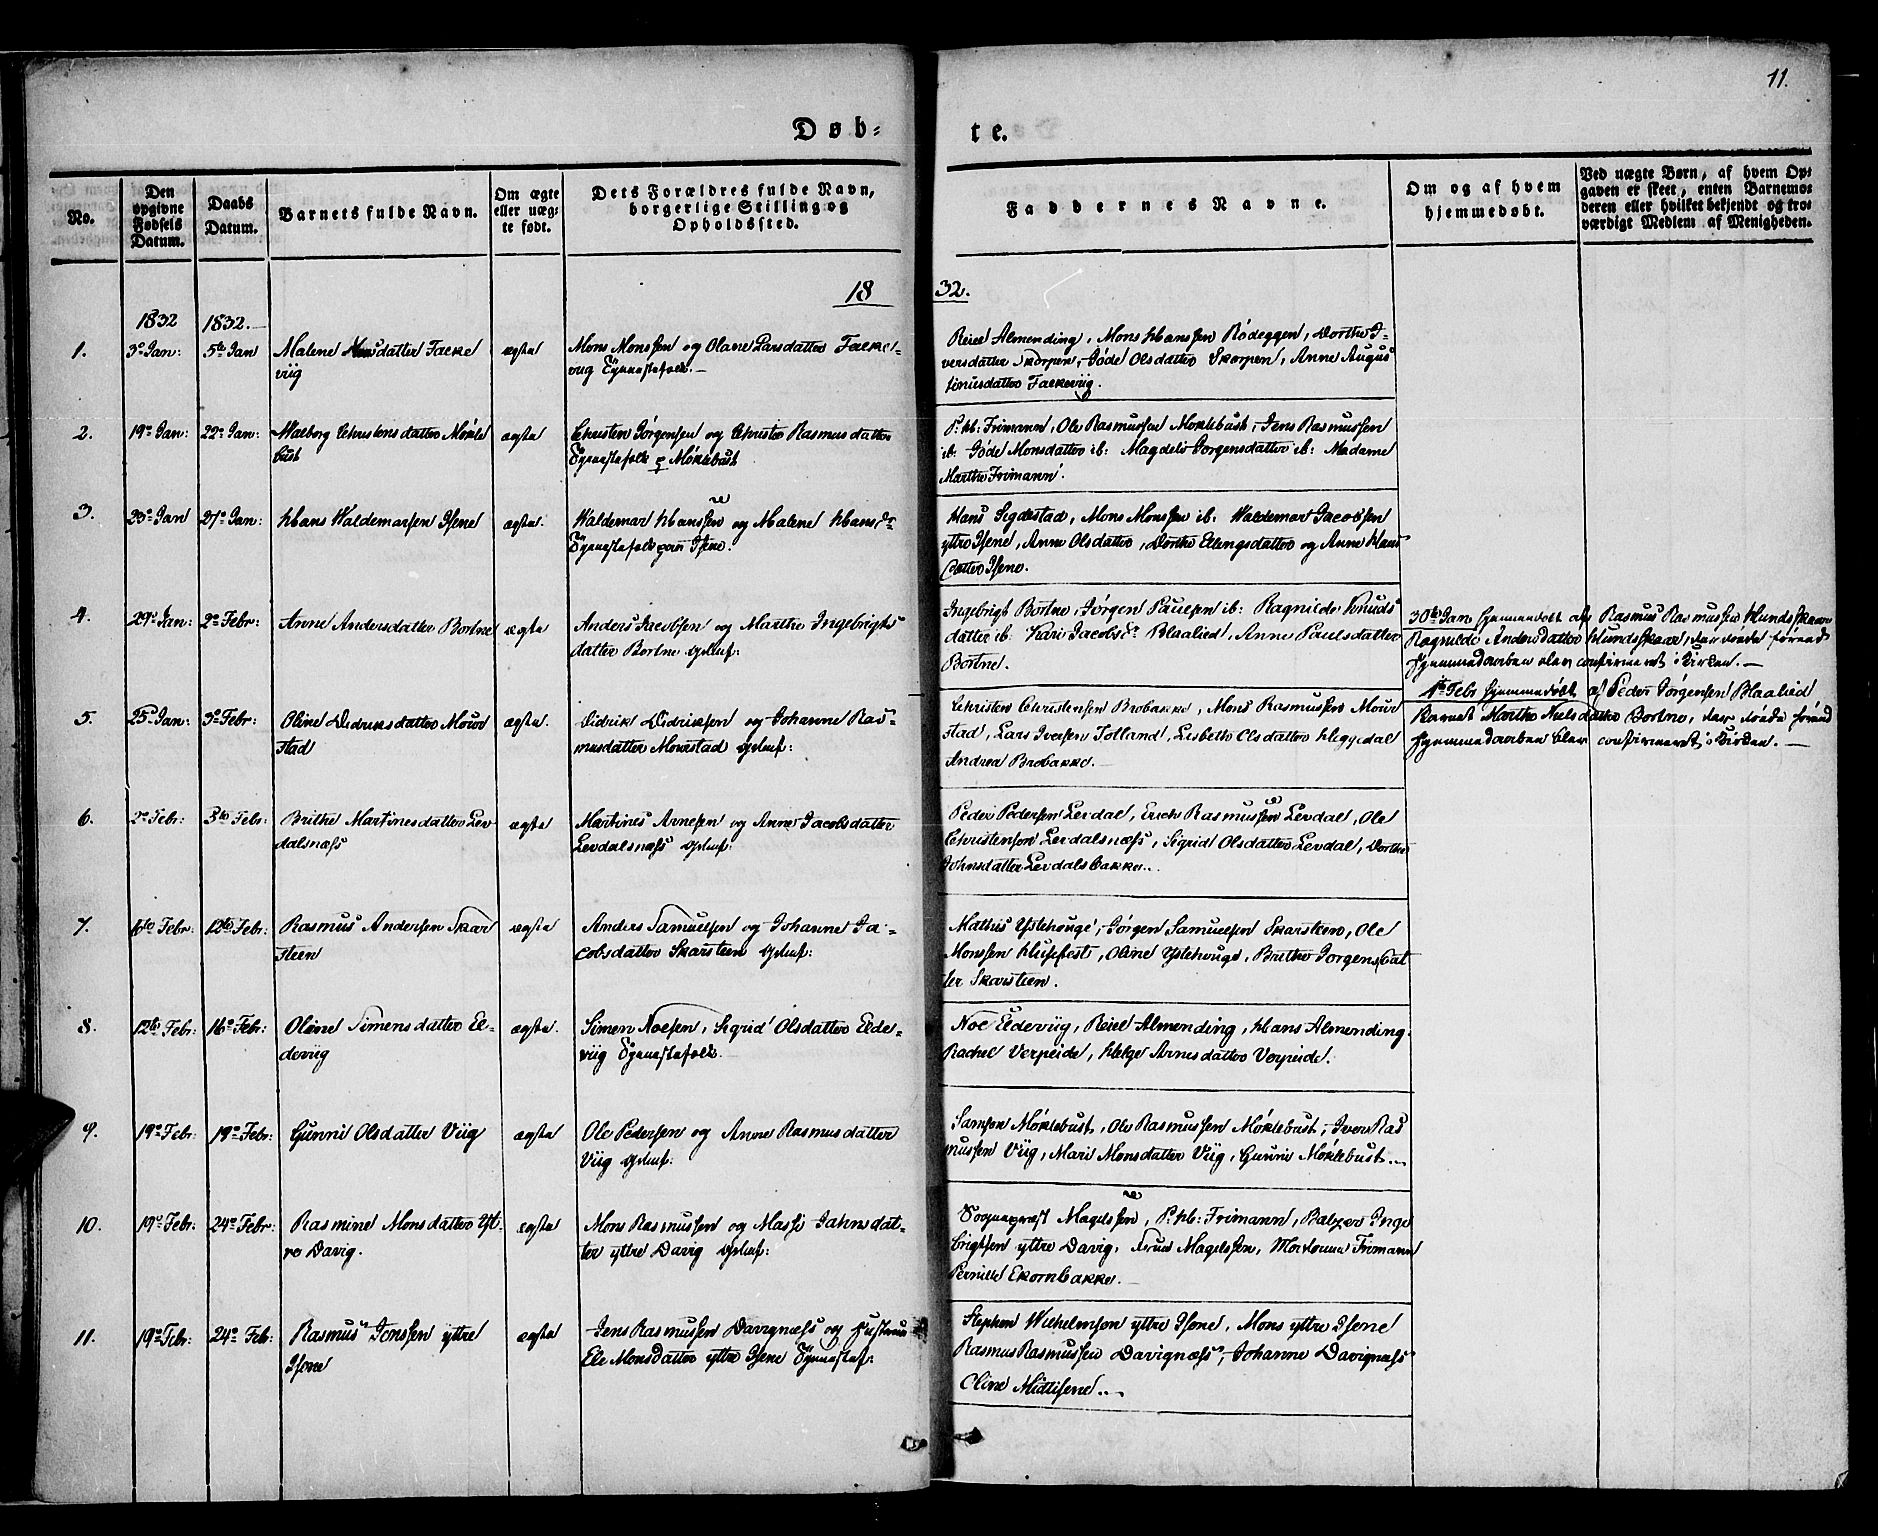 11.
Døb= te.
No.
Den opgivne Fødsels Datum.
Daabs Datum.
Barnets fulde Navn.
Om ægte eller uæg= te født.
Dets Forældres fulde Navn, borgerlige Stilling og Opholdssted.
Faddernes Navne.
Om og af hvem hjemmedøbt.
Ved uægte Børn, af hvem Op= gaven er skeet, enten Barnemo= deren eller hvilket bekjendt og tro= værdigt Medlem af Menigheden.
18 32.
1832 1832.
1. 3de Jan: 5te Jan Malene Monsdatter Falke
viig
ægte
Mons Monssen og Olane Larsdatter Falke-
viig Egenæstefolk.
Reiel Almending, Mons Hanssen Rødeggen, Dorthe I-
versdatter Skorpen, Gøde Olsdatter Skorpen, Anne Augus
tinusdatter Falkeviig.
2. 19de Jan: 22de Jan: Malborg Christensdatter Møkle
bust
ægte
Christen Jørgensen og Christie Rasmusdatter
Møklebust
P: hl: Frimann, Ole Rasmussen Moklebust, Jens Rasmussen
ib: Gøde Monsdatter ib: Magdeli Jørgensdatter ib: Madame
Marthe Frimann.
3. 23de Jan 27de Jan: Hans Waldemarsen Isene
ægte.
Waldemar Hanssen og Malene Hansdr
Isene.
Hans Segdestad, Mons Monssen ib: Waldemar Jacobsen
yttre Isene, Anne Olsdatter, Dorthe Ellingsdatter og Anne Hans
datter Isene.
4. 29de Jan: 2de Febr: Anne Andersdatter Bortne
ægte
Anders Jacobsen og Marthe Ingebrigts
datter Bortne
Ingebrigt Bortne, Jørgen Paulsen ib: Ragnilde Knuds
datter ib: Kari Jacobsdr Blaalied, Anne Paulsdatter
Bortne.
30te Jan hjemmedøbt af Rasmus Rasmussen Hundskaar
Ragnilde Andersdatter Hundskaar, der døde førend
hjemmedaaben blev confirmeret i Kirken.
5. 25de Jan: 3de Febr: Oline Didriksdatter Mour
stad
ægte.
Didrik Didriksen og Johanne Ras-
musdatter Mourstad
Christen Christensen Brobakke, Mons Rasmussen Mour
stad, Lars Iversen Tolland, Lisbethe Olsdatter Heggedal
Andrea Brobakke.
1te Febr hjemmedøbt af Peder Jørgensen Blaalied
Barnet Marthe Nielsdatter Bortne, der døde førend
hjemmedaaben blev confirmeret i Kirken.
6. 2de Febr: 5te Febr: Brithe Martinesdatter Lev
dalsnæss
ægte
Martines Arnesen og Anne Jacobsdatter
Levdalsnæss
Peder Pedersen Levdal, Erich Rasmussen Levdal, Ole
Christensen Levdalsnæss, Sigrid Olsdatter Levdal, Dorthe
Johnsdatter Levdalsbakke.
7. 6te Febr: 12te Febr: Rasmus Andersen Skar
steen
ægte
Anders Samuelsen og Johanne Ja-
cobsdatter Skarsteen
Mathis Ystehouge, Jørgen Samuelsen Skarsteen, Ole
Monssen Huffest, Oline Ystehouge, Brithe Jørgensdat
ter Skarsteen.
8. 12te Febr: 16de Febr: Oline Simensdatter El-
deviig
ægte.
Simen Noesen, Sigrid Olsdatter Elde-
viig Egenæstefolk.
Noe Eldeviig, Reiel Almending, Hans Almending,
Rachel Verpeide, Helge Arnesdatter Verpeide.
9. 19de Febr: 19de Febr: Gunni Olsdatter Viig
ægte
Ole Pedersen og Anne Rasmusdatter
Viig
Samsen Møklebust, Ole Rasmussen Møklebust, Iver Ras
mussen Viig, Mari Monsdatter Viig, Gunni Møklebust.
10. 19de Febr: 24de Febr: Rasmine Monsdatter Yt-
re Davig.
ægte
Mons Rasmussen og Massi Jahnsdat-
ter yttre Davig
Sognepræst Magelssen, P: hl: Frimann, Balzer Inge
brigtsen yttre Davig, Frue Magelssen, Madame Frimann
Pernille Ekornbakke.
11. 19de Febr: 24de Feb: Rasmus Jenssen yttre
Isene
ægte
Jens Rasmussen Davignæss og Hustrue
Ele Monsdatter yttre Isene
Stephen Wilhelmsen yttre Isene, Mons yttre Isene
Rasmus Rasmussen Davignæss, Johanne Davignæss
Oline Midtisene.